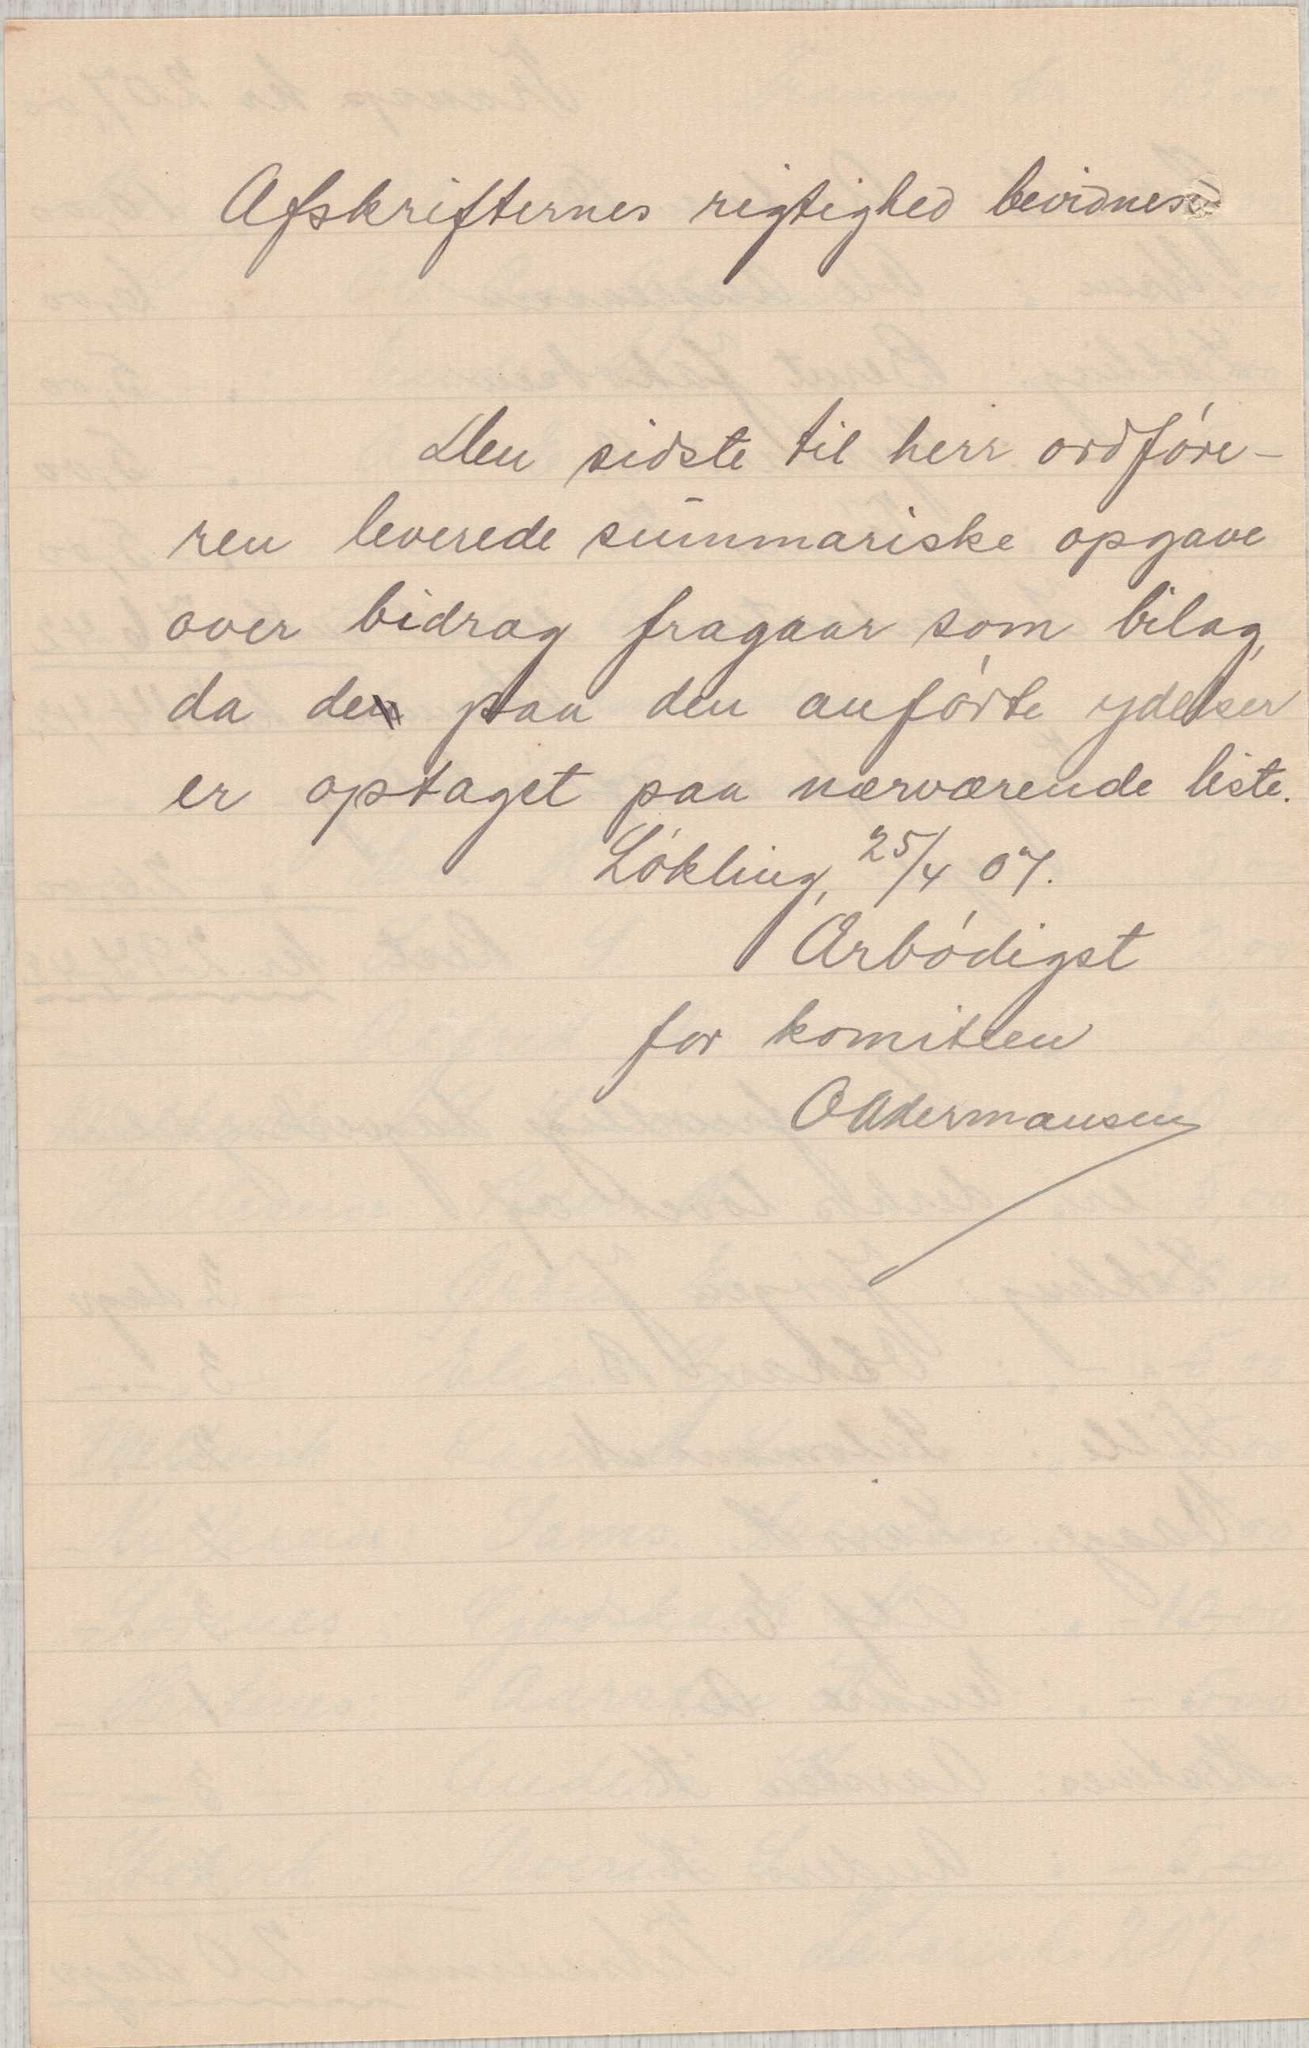 Afskrifternes rigtighed bevidnes
Den sidste til herr ordføre-
ren leverede summariske opgave
over bidrag fragaar som bilag,
da de paa den anførte ydelser
er optaget paa nærværende liste.
Løkling, 25/4 07.
Ærbødigst
for komiteen
O Adermansen